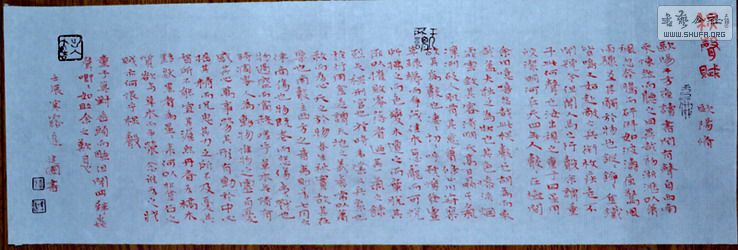 秋聲賦
歐陽脩
歐陽子方夜讀書聞有聲自西南
來悚然而聽之曰異哉初淅瀝以蕭
颯忽奔騰而砰湃如波濤夜驚風
雨驟至其觸於物也鏦鏦錚錚金鐵
皆鳴又如赴敵之兵銜枚疾走不
聞號令但聞人馬之行聲余謂童
子此何聲也汝出視之童子曰星月
皎潔明河在天四無人聲聲在樹間
余曰噫嘻悲哉此秋聲也胡為而來
哉蓋夫秋之為狀也其色慘淡煙
霏雲斂其容清明天高日晶其氣
慄冽砭人肌骨其意蕭條山川寂
寥故其為聲也淒淒切切呼號憤發豐
草綠縟而爭茂佳木蔥蘢而可悅草
拂之而色變木遭之而葉脫其
所以摧敗零落者乃一氣之餘
烈夫秋刑官也於時為陰又兵象也
於行用金是謂天地之義氣常以肅
殺而為心天之於物春生秋實故其在
樂也商聲主西方之音夷則為七月之
律商傷也物既老而悲傷夷戮也
物過盛而當殺嗟乎草木無情有
時飄零人為動物惟物之靈百憂
感其心萬事勞其形有動於中必
搖其精而況思其力之所不及憂其
智之所不能宜其渥然丹者為槁木
黟然黑者為星星奈何以非金石之
質欲與草木而爭榮念誰為之戕
賊亦何恨乎秋聲
童子莫對垂頭而睡但聞四壁蟲
聲唧唧如助余之歎息
壬辰
書
WWW.SHUFR.ORG